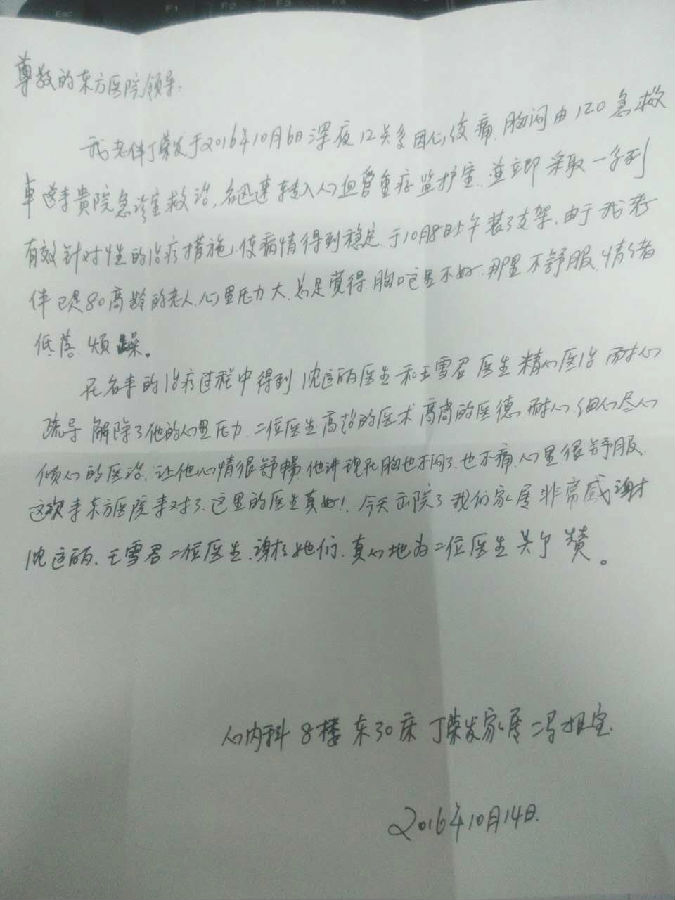 尊敬的东方医院领导:
我老伴丁荣发于2016年10月6日深夜12点多因心绞痛,胸闷由120急救
车送来贵院急诊室救治,后迅速转入心血管重症监护室.并立即采取一系列
有效针对性的治疗措施,使病情得到稳定,于10月8日上午装了支架.由于我老
伴已是80高龄的老人,心里压力大,总是觉得胸口这里不好,那里不舒服,情绪
低落烦躁。
在后来的治疗过程中得到沈迎丽医生和王雪君医生精心医治耐心
疏导解除了他的心里压力.二位医生高超的医术高尚的医德,耐心细心尽心
倾心的医治,让他心情很舒畅他讲现在胸也不闷了,也不痛,心里很舒服,
这次来东方医院来对了,这里的医生真好!今天出院了我们家属非常感谢
沈迎丽、王雪君二位医生,谢谢她们,真心地为二位医生点个赞。
心内科8楼东30床丁荣发家属冯招宝
2016年10月14日.